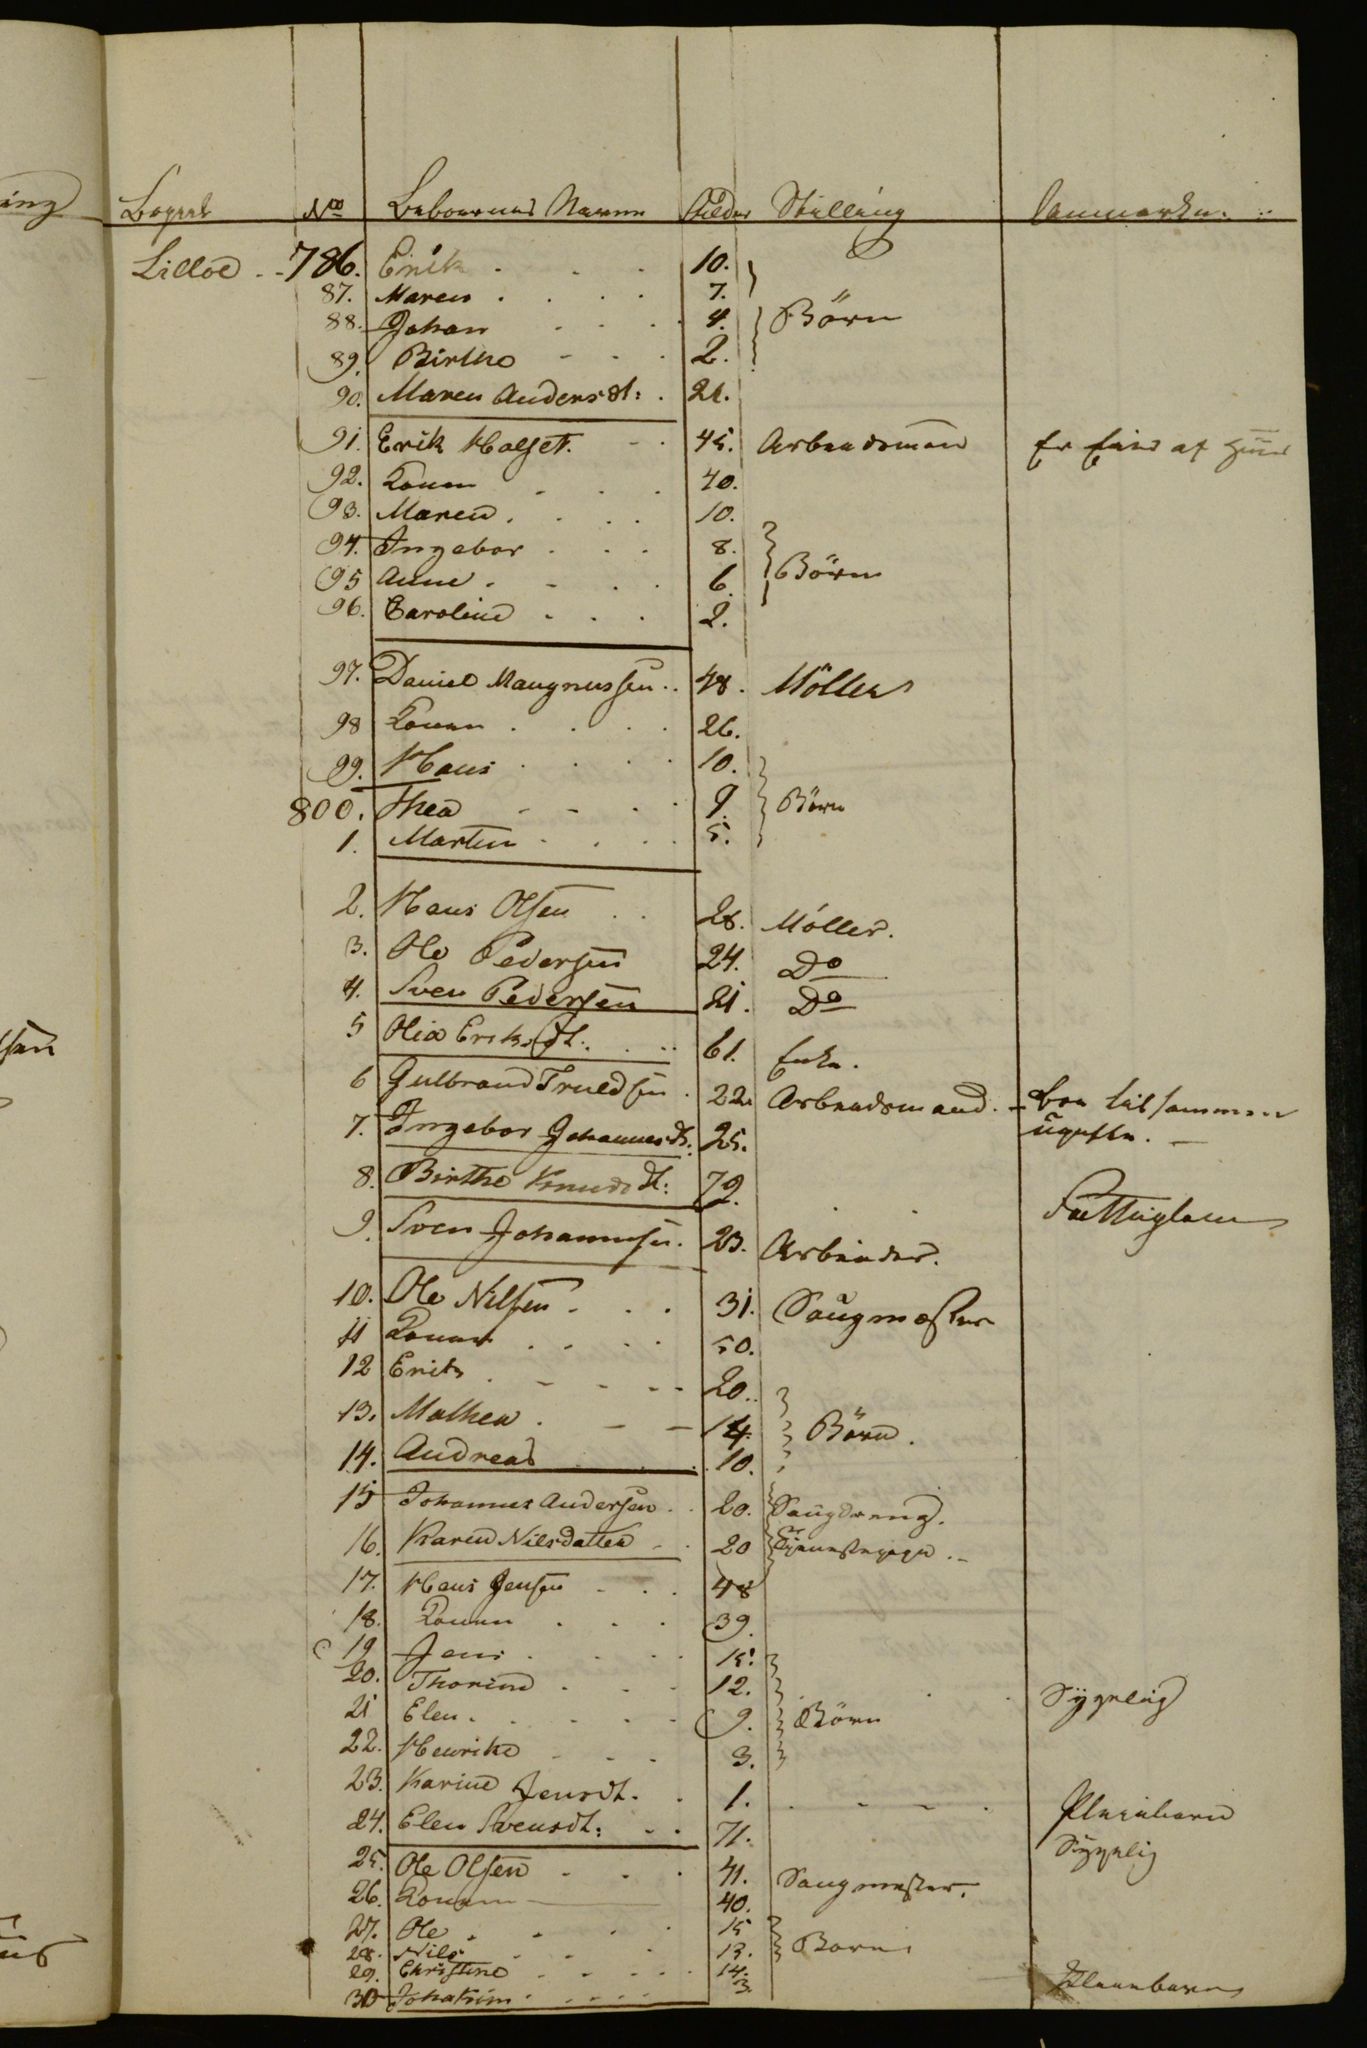 Bopæl No Beboernes Navne Alder Stilling Anmærkn.
Lilloe 786. Erik 10.
87. Maren 7.
88. Johan 4. Börn
89. Birthe 2.
90. Maren Andersdt: 21.
91. Erik Holset. 45. Arbeidsmand Er Eier af
92. Konen 40.
93. Maren 10.
94. Ingebor 8.
95 Anne 6. Börn
96. Caroline 2.
97. Daniel Maugnussen 48. Möller
98 Konen 26.
99. Hans 10.
800. Thea 9. Börn
1. Martin 5.
2. Hans Olsen 28. Möller.
3. Ole Pedersen 24. Do
4. Sven Pedersen 21. Do
5 Olia Eriksdt: 61. Enke.
6 Gulbrand Truldsen 22. Arbeidsmand. - boe tilsammen
7. Ingebor Johannesdt. 25. ugifte. -
8. Birthe Knudsdt: 79. Fattiglem
9. Sven Johannesen. 23. Arbeider.
10. Ole Nilsen 31. Saugmester
11 Konen 50.
12 Erik 20.
13. Mathea 14. Börn.
14. Andreas 10.
15 Johannes Andersen 20. Saugdreng.
16. Karen Nilsdatter 20 Tjenestepige. -
17. Hans Jensen 48
18. Konen 39.
19 Jens 15.
20. Thorine 12. Sygelig
21 Elen 9. Börn
22. Henrike 3.
23. Karine Jensdt. 1. Pleiebarn
24. Elen Svensdt: 71. Sygelig
25. Ole Olsen 41. Saugmester.
26. Konen 40.
27. Ole 15
28. Nils 13. Børn
29. Christine 14.
30 Johakim 3. Pleiebarn